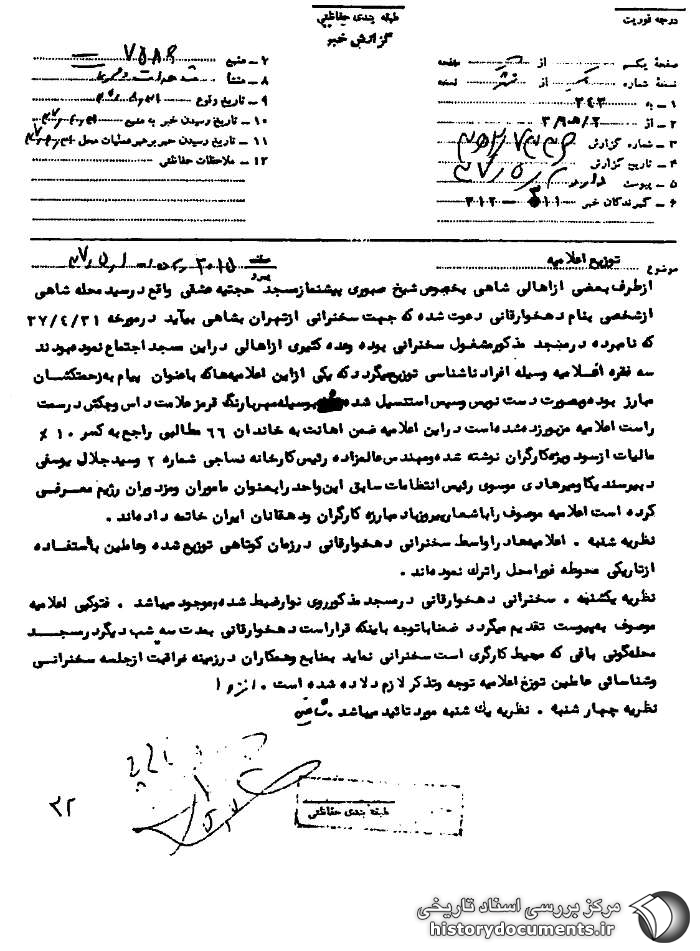 درجه فوریت
طبقه بندی حفاظتی
گزارش خبر
صفحه یکم از صفحه
نسخه شماره یک از نسخه
۱ ـ به ۳۴۳
۲ ـ از ۳ه‍/۲
۳ ـ شماره گزارش
۴ ـ تاریخ گزارش
۵ ـ پیوست دارد
۶ ـ گیرندگان خبر ۳۱۲ ـ ۳۱۱
۷ ـ منبع ۷۵۸۹
۸ ـ منشأ
۹ ـ تاریخ وقوع
۱۰ ـ تاریخ رسیدن خبر به منبع
۱۱ ـ تاریخ رسیدن خبر به رهبر عملیات محل
۱۲ ـ ملاحظات حفاظتی
موضوع توزیع اعلامیه
ازطرف بعضی ازاهالی شاهی بخصوص شیخ صبوری پیشنماز مسجد حجتیه عشقی واقع درسید محله شاهی
ازشخصی بنام دهخوارقانی دعوت شده که جهت سخنرانی ازتهران بشاهی بیاید درمورخه ۳۷/۴/۳۱
که نامبرده درمسجد مذکور مشغول سخنرانی بوده وعده کثیری ازاهالی دراین مسجد اجتماع نموده بودند
سه فقره اعلامیه وسیله افراد ناشناسی توزیع میگردد که یکی ازاین اعلامیه‌ها که باعنوان پیام به زحمتکشان
مبارز بوده وبصورت دست نویس وسپس استنسیل شده بوسیله مهر بارنگ قرمز علامت داس وچکش درسمت
راست اعلامیه مزبور زده شده است دراین اعلامیه ضمن اهانت به خاندان ۶۶ مطالبی راجع به کسر ۱۰٪
مالیات ازسود ویژه کارگران نوشته شده ومهندس عالمزاده رئیس کارخانه نساجی شماره ۲ وسید جلال یوسفی
دبیر سندیکا ومیرهادی موسوی رئیس انتظامات سابق این واحد را بعنوان ماموران ومزدوران رژیم معرفی
کرده است اعلامیه موصوف را باشعار پیروزباد مبارزه کارگران ودهقانان ایران خاتمه داده‌اند .
نظریه شنبه . اعلامیه‌ها در اواسط سخنرانی دهخوارقانی درزمان کوتاهی توزیع شده وعاملین بااستفاده
ازتاریکی محوطه فورا محل راترک نموده‌اند .
نظریه یکشنبه . سخنرانی دهخوارقانی درمسجد مذکور روی نوار ضبط شده وموجود میباشد . فتوکپی اعلامیه
موصوف بپیوست تقدیم میگردد ضمنا باتوجه باینکه قراراست دهخوارقانی بمدت سه شب دیگر درمسجد
محله‌گونی بافی که محیط کارگری است سخنرانی نماید بمنابع وهمکاران درزمینه مراقبت ازجلسه سخنرانی
وشناسائی عاملین توزیع اعلامیه توجه وتذکر لازم داده شده است .
نظریه چهار شنبه . نظریه یک شنبه مورد تائید میباشد .
۲۲
طبقه بندی حفاظتی
مرکز بررسی اسناد تاریخی
historydocuments.ir